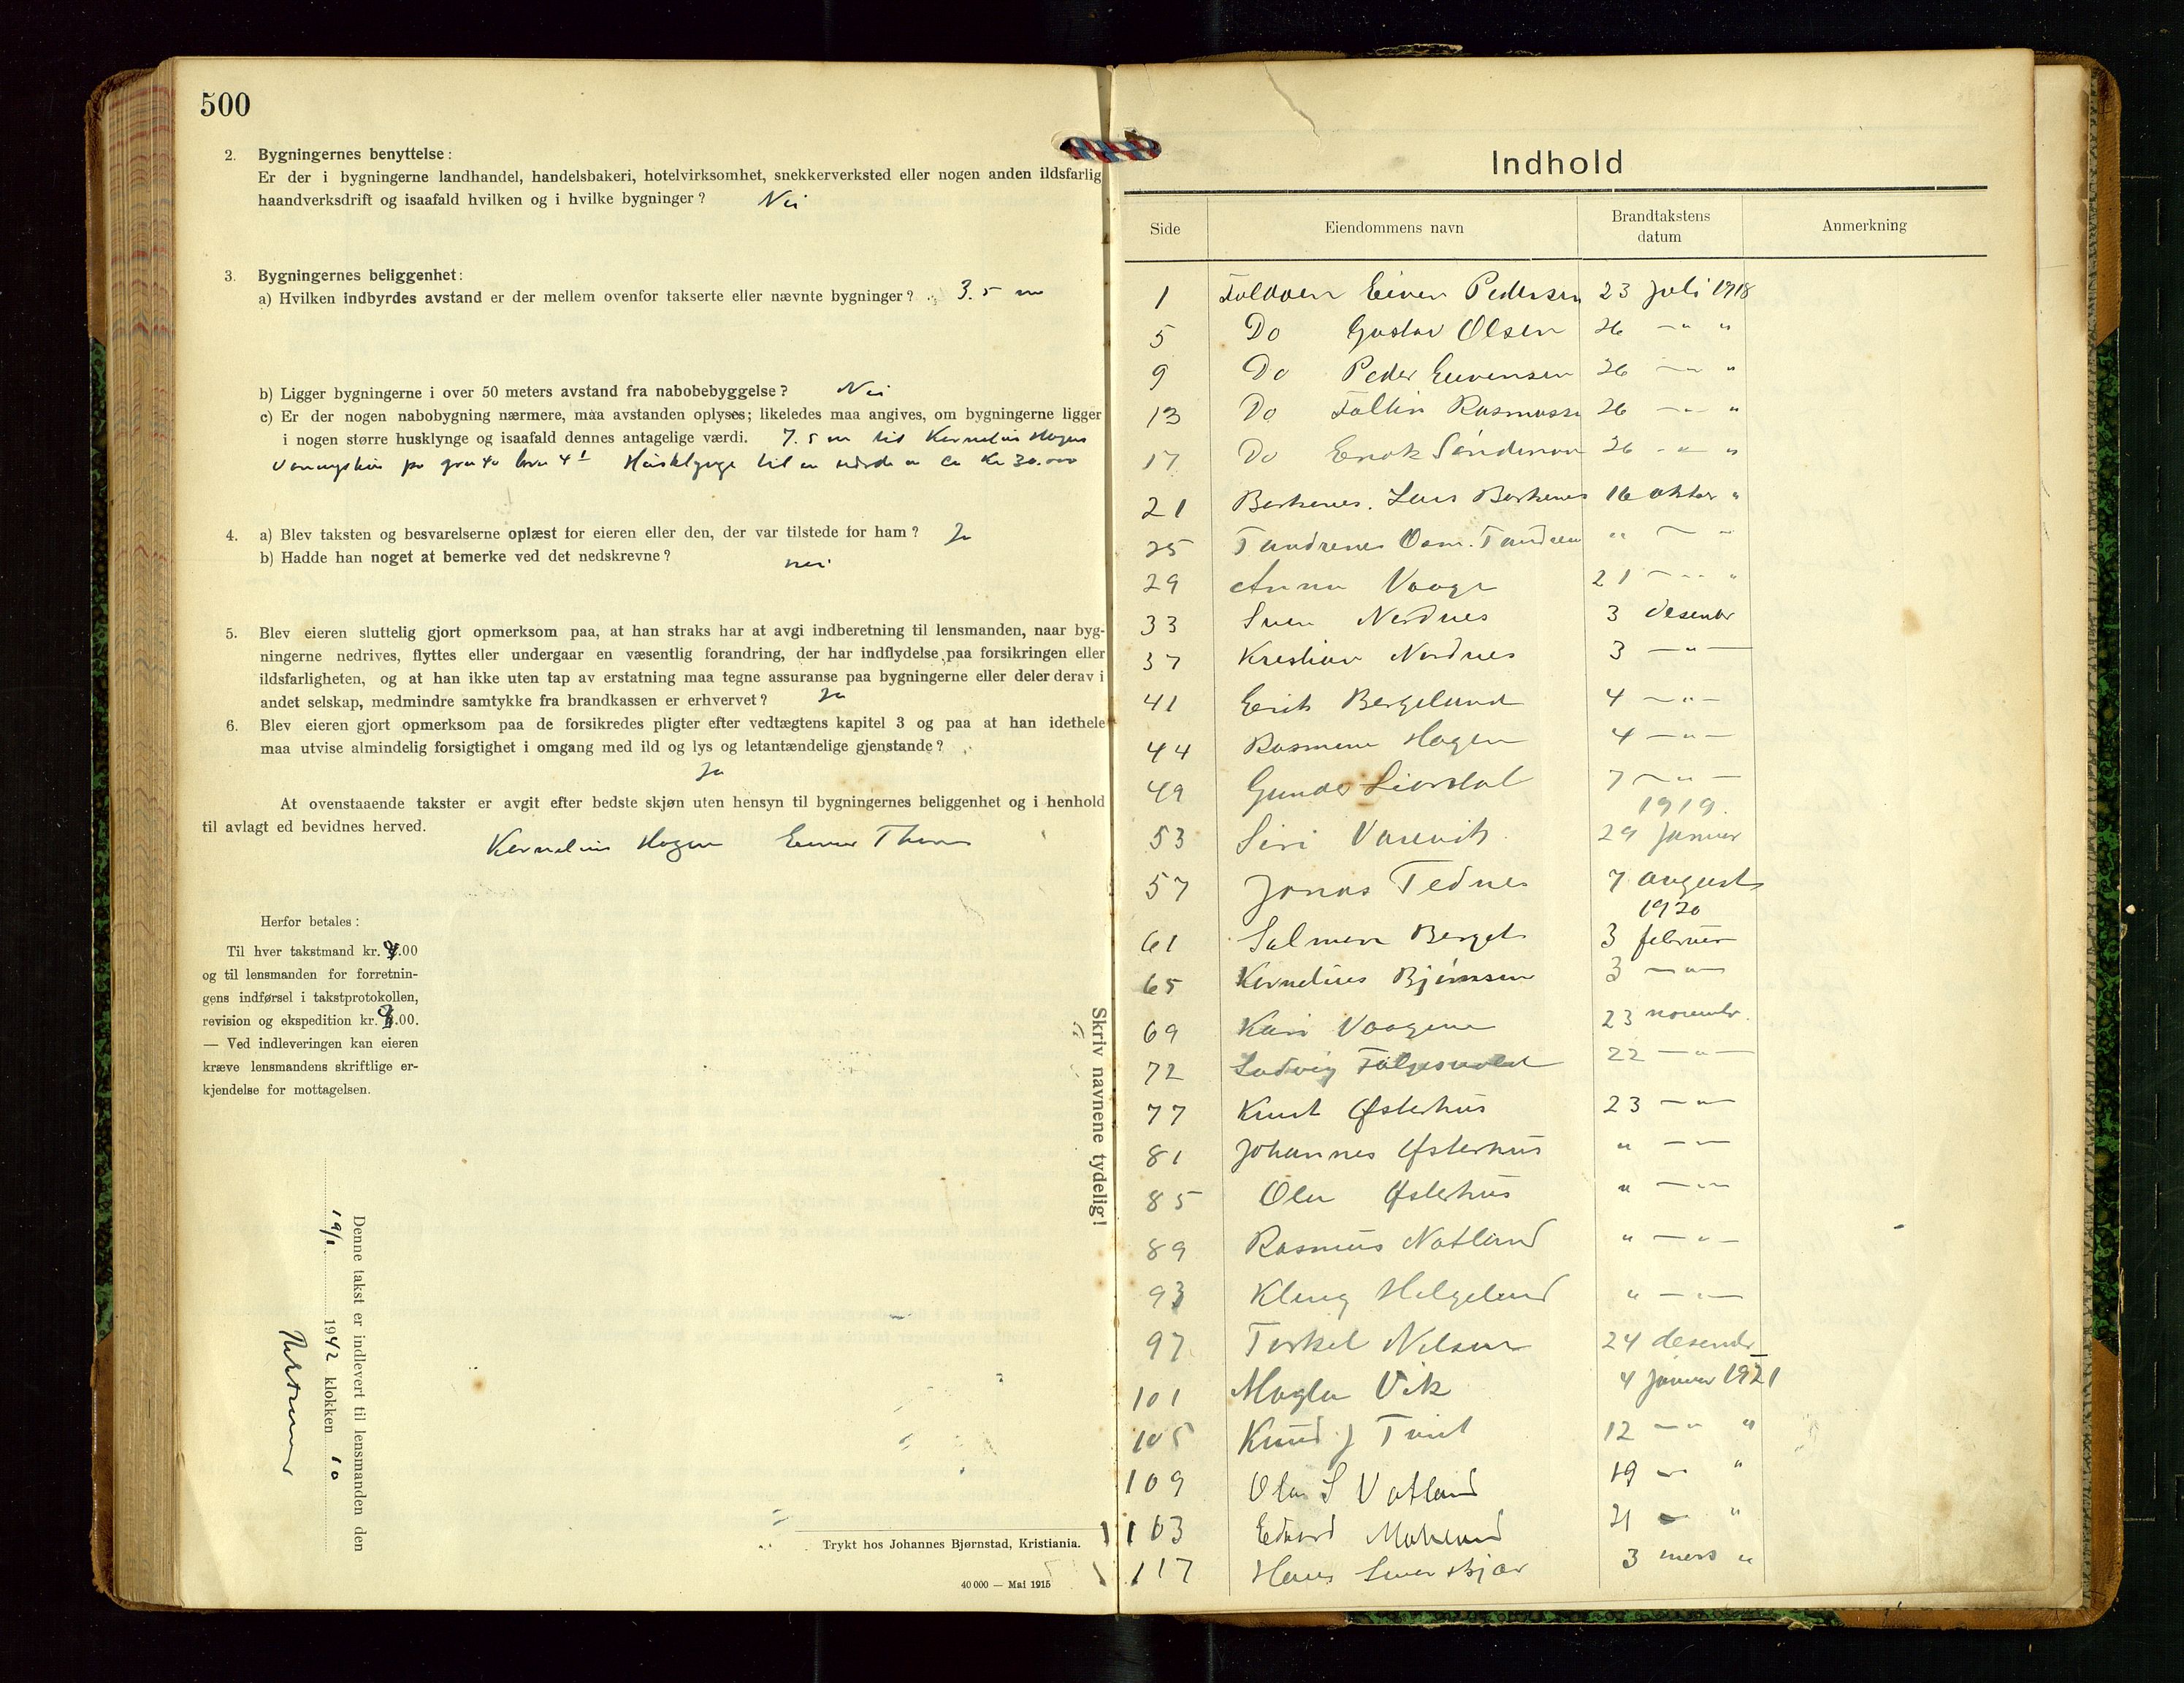 500
2. Bygningernes benyttelse:
Er der i bygningerne landhandel, handelsbakeri, hotelvirksomhet, snekkerverksted eller nogen anden ildsfarlig
haandverksdrift og isaafald hvilken og i hvilke bygninger? Nei
3. Bygningernes beliggenhet:
a) Hvilken indbyrdes avstand er der mellem ovenfor takserte eller nævnte bygninger? 3.5 m
b) Ligger bygningerne i over 50 meters avstand fra nabobebyggelse? Nei
c) Er der nogen nabobygning nærmere, maa avstanden oplyses; likeledes maa angives, om bygningerne ligger
i nogen større husklynge og isaafald dennes antagelige værdi. 7.5 m til Kornelius Hagens
til en ca Kr 30.000
4. a) Blev taksten og besvarelserne oplæst for eieren eller den, der var tilstede for ham? Ja
b) Hadde han noget at bemerke ved det nedskrevne? nei
5. Blev eieren sluttelig gjort opmerksom paa, at han straks har at avgi indberetning til lensmanden, naar byg-
ningerne nedrives, flyttes eller undergaar en væsentlig forandring, der har indflydelse paa forsikringen eller
ildsfarligheten, og at han ikke uten tap av erstatning maa tegne assuranse paa bygningerne eller deler derav i
andet selskap, medmindre samtykke fra brandkassen er erhvervet? Ja
6. Blev eieren gjort opmerksom paa de forsikredes pligter efter vedtægtens kapitel 3 og paa at han idethele
maa utvise almindelig forsigtighet i omgang med ild og lys og letantændelige gjenstande?
Ja
At ovenstaaende takster er avgit efter bedste skjøn uten hensyn til bygningernes beliggenhet og i henhold
til avlagt ed bevidnes herved.
Kornelius Hagen
Herfor betales:
Til hver takstmand kr. .00
og til lensmanden for forretnin-
gens indførsel i takstprotokollen,
revision og ekspedition kr. .00.
— Ved indleveringen kan eieren
kræve lensmandens skriftlige er-
kjendelse for mottagelsen.
Denne takst er indlevert til lensmanden den
19/1 1942 klokken 10
Skriv navnene tydelig!
Trykt hos Johannes Bjørnstad, Kristiania.
40 000 — Mai 1915
Indhold
Side Eiendommens navn Brandtakstens datum Anmerkning
1 Foldøen Einer Pedersen 23 juli 1918
5 Do Gustav Olsen 26 — " "
9 Do Peder Eivensen 26 — " "
13 Do Rasmussen 26 — " "
17 Do Enok 26 - " "
21 Borkenes. Lars Borkenes 16 oktbr "
25 " — "
29 Anna Vaage 21 — " "
33 Sven Nordnes 3 desembr
37 Kristian Nordnes 3 — " —
41 Erik Bergeland 4 — " —
44 Rasmus Hagen 4 — " —
49 7 — " —
1919.
53 Siri 29 januar
57 Jonas Tednes 7 august
1920
61 Berget 3 februar
65 Kornelius Bjørnsen 3 — " —
69 Kari Vaagene 23 novembr.
72 Ludvig 22 — " —
77 Knut Østerhus 23 — " —
81 Johannes Østerhus " — " —
85 Ola Østerhus " — " —
89 Rasmus Natland " — " —
93 Helgeland " — " —
97 Torkel Nilsen 24 desembr
101 Magla Vik 4 januar 1921
105 Knud J 12 — " "
109 Olav S Vatland 19 — "
113 Edvard 21 — "
117 Hans 3 mars "